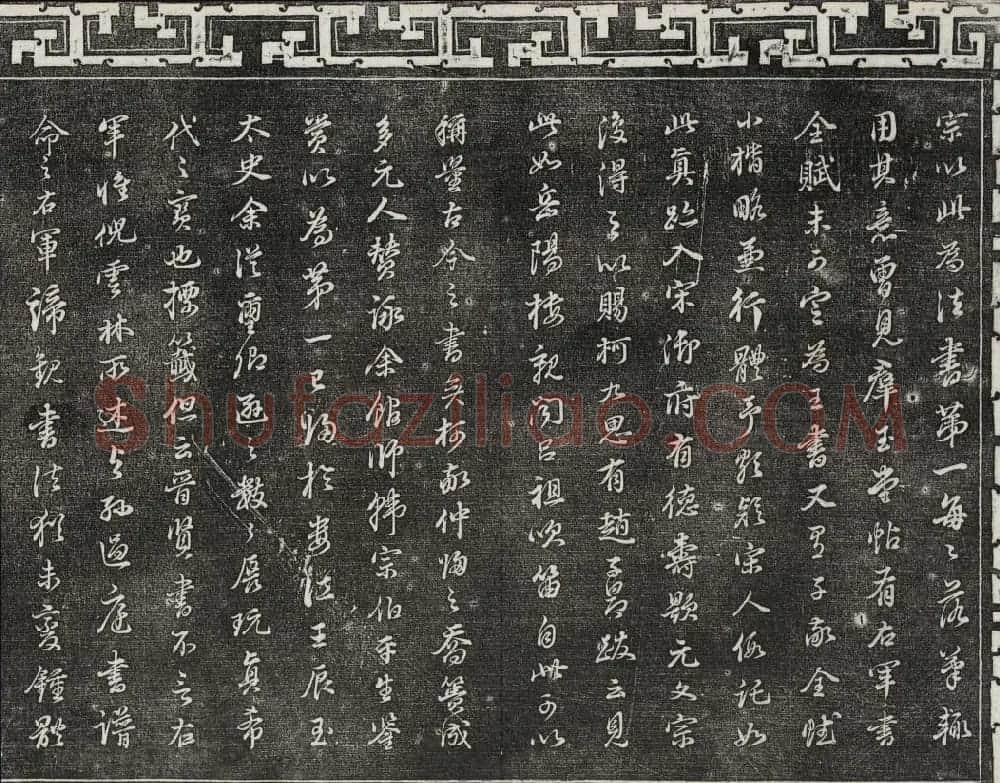 宗以此為法書第一每々落筆輒
用其意曾見群玉堂帖有右軍書
全賦未可定為王書又見子敬全賦
小楷略兼行體乎 疑宋人 託如
此真跡入宋御府有德壽題元文宗
後得之以賜柯九思有趙子昂跋云見
此如岳陽樓親聞呂祖吹笛自此可以
稱量古今之書矣柯敬仲 之喬簣成
多元人贊詠余館師韓宗伯平生鑒
賞以為第一已歸於婁江王辰玉
太史余從璽卿遜之數々展玩真希
代之寶也標籤但云晉賢書不言右
軍惟倪雲林所述与孫過庭書譜
命之右軍諦觀書法猶未變鍾體
Shufaziliao.COM